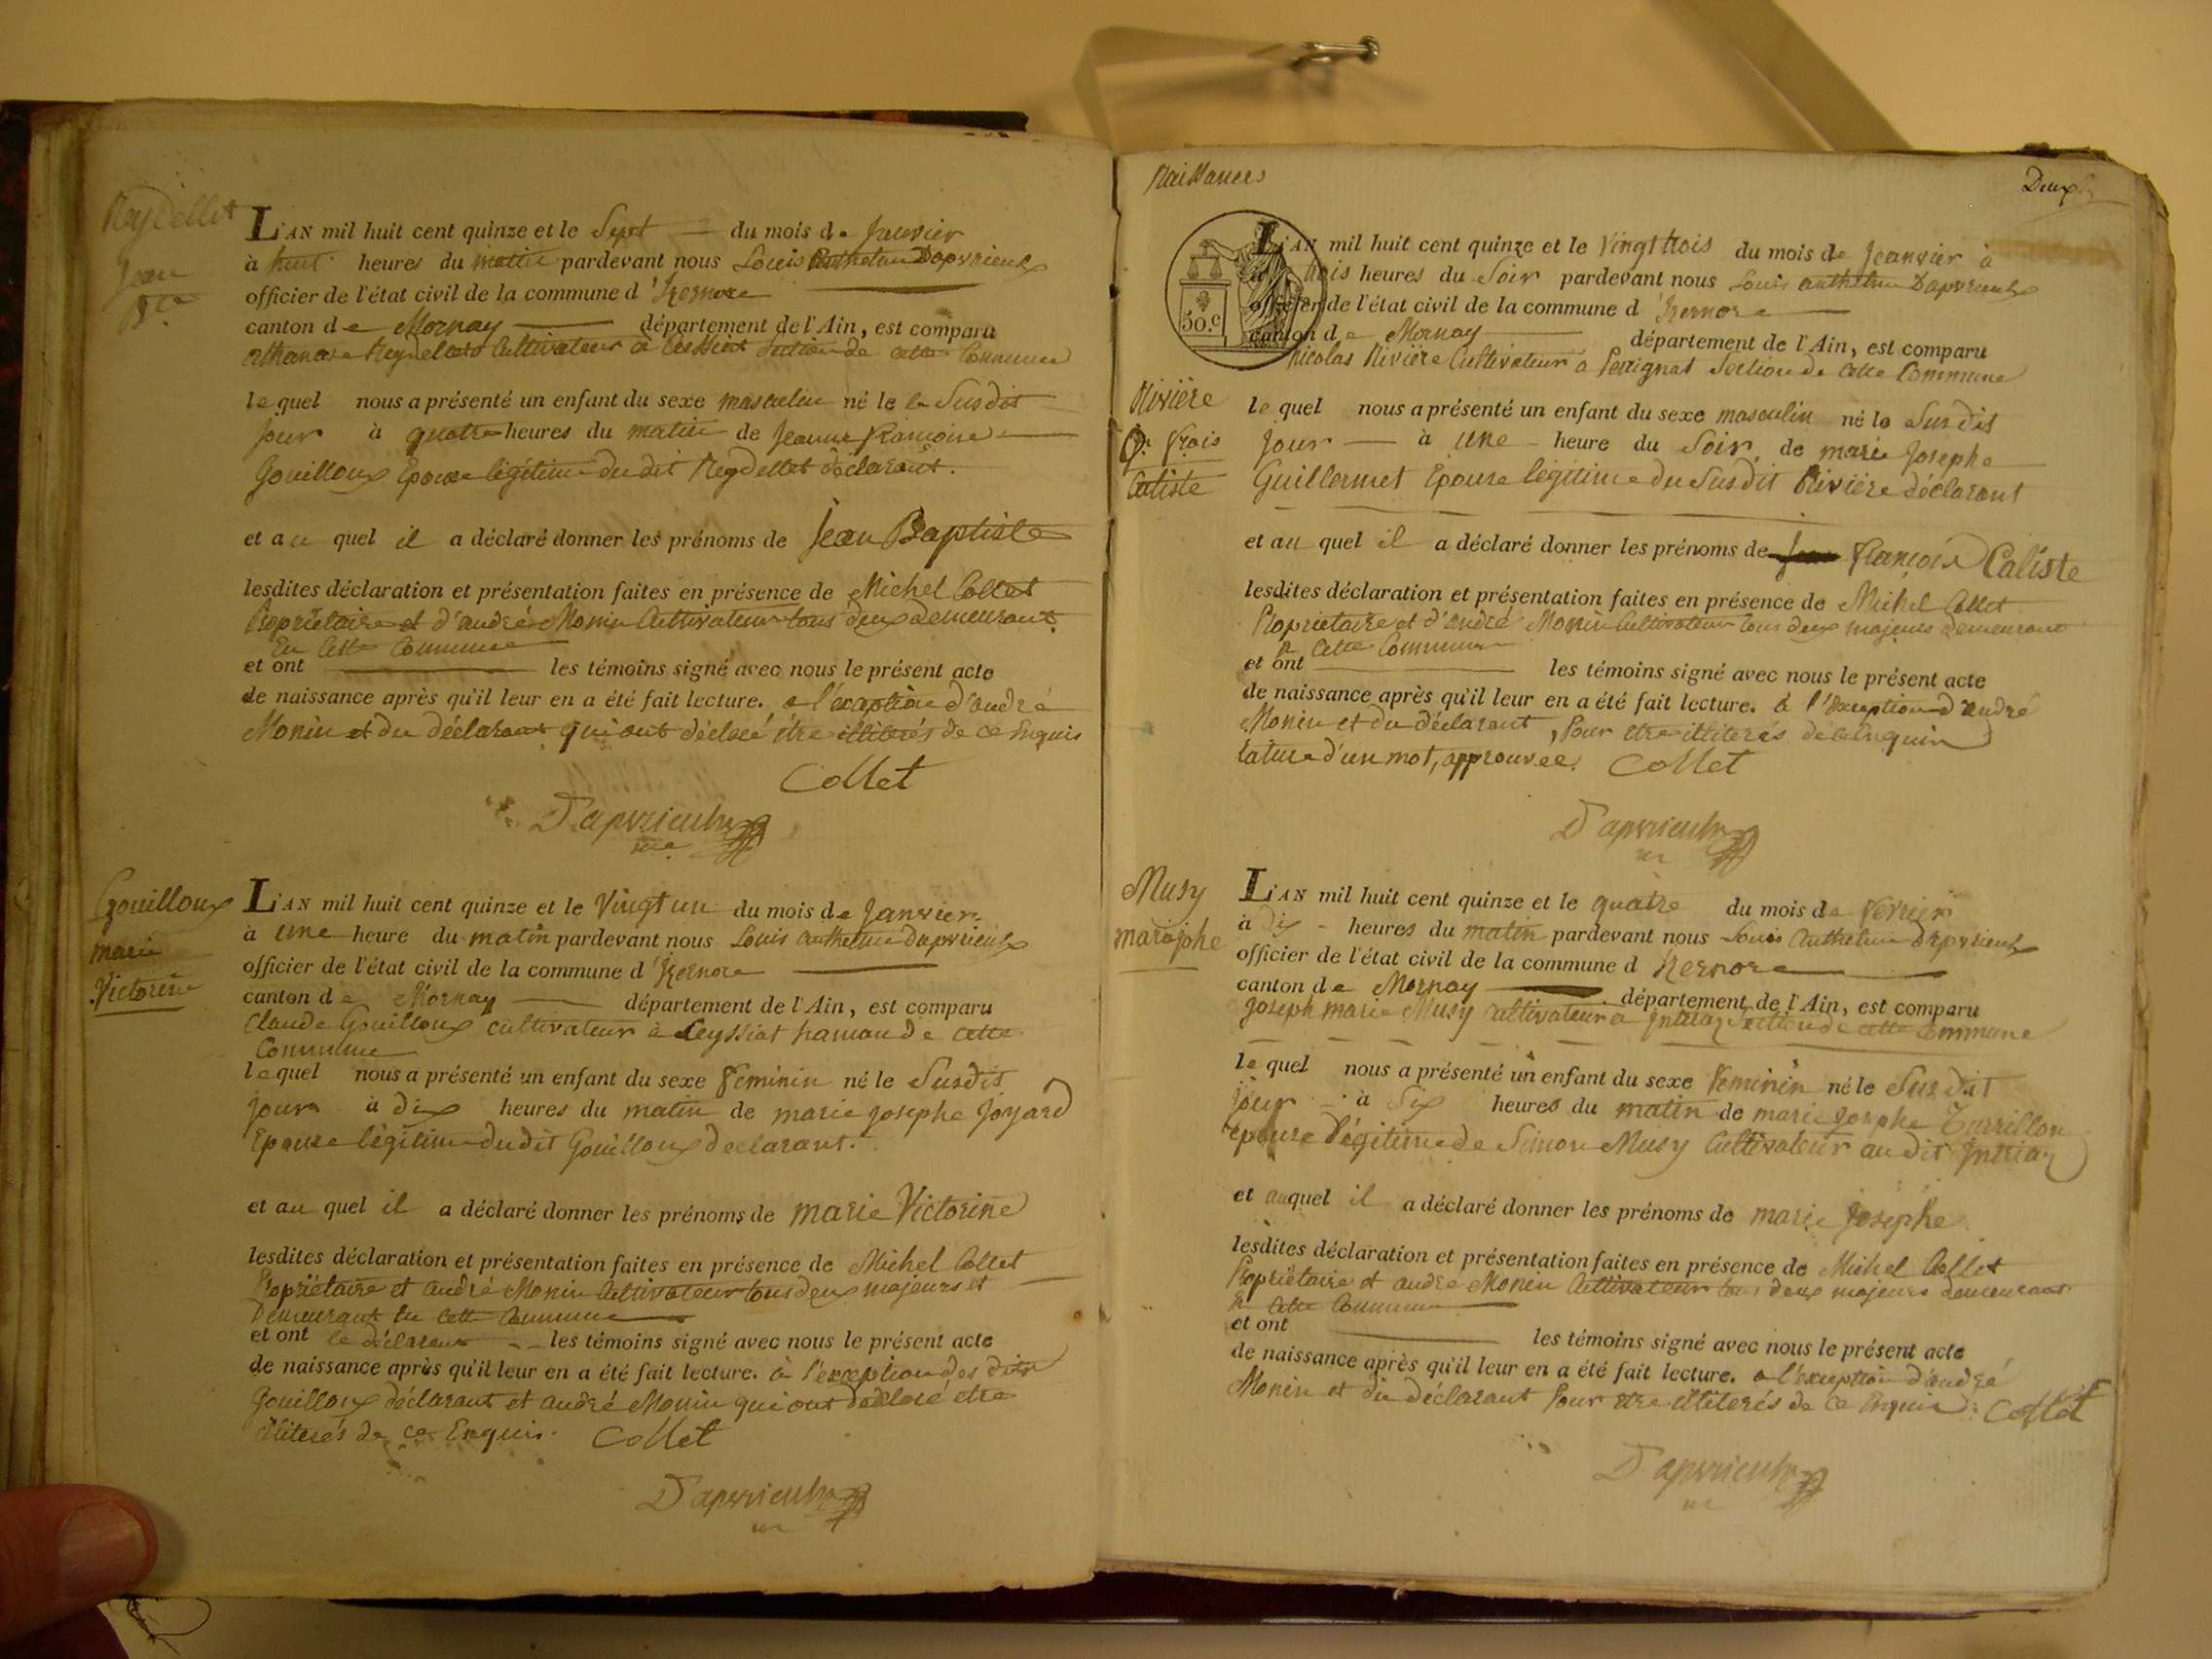 Reydellet
Jean
Bte
L'AN mil huit cent quinze et le Sept du mois de Janvier
à huit heures du matin pardevant nous Louis Anthelme Dapvrieulx
officier de l'état civil de la commune d'Izernore
canton de Mornay département de l'Ain, est comparu
athanase Reydellet Cultivateur à Section de cette Commune
lequel nous a présenté un enfant du sexe masculin né le le Susdit
Jour à quatre heures du matin de Jeanne Françoise
Gouilloux Epouse légitime du dit Reydellet déclarant.
et au quel il a déclaré donner les prénoms de Jean Baptiste
lesdites déclaration et présentation faites en présence de Michel Collet
Propriétaire et d'andré Monin Cultivateur tous deux demeurant
En Cette Commune
et ont les témoins signé avec nous le présent acte
de naissance après qu'il leur en a été fait lecture. a l'exception d'andré
Monin et du déclarant qui ont déclaré être illiterés de ce Enquis
Collet
Dapvrieulx
me
Gouilloux
marie
Victorine
L'AN mil huit cent quinze et le Vingt un du mois de Janvier
à une heure du matin pardevant nous Louis anthelme Dapvrieulx
officier de l'état civil de la commune d'Izernore
canton de Mornay département de l'Ain, est comparu
Claude Gouilloux cultivateur à Ceyssiat hamau de cette
Commune
lequel nous a présenté un enfant du sexe Feminin né le Susdit
Jour à dix heures du matin de marie Josephe Joyard
Epouse légitime dudit Gouilloux déclarant.
et au quel il a déclaré donner les prénoms de marie Victorine
lesdites déclaration et présentation faites en présence de Michel Collet
Propriétaire et andré Monin Cultivateur tous deux majeurs et
Demeurant en cette Commune
et ont le déclarant les témoins signé avec nous le présent acte
de naissance après qu'il leur en a été fait lecture. à l'exception des dits
Gouilloux déclarant et andré Monin qui ont déclaré etre
illiterés de ce Enquis. Collet
Dapvrieulx
Naissances
Deux
50.c
Rivière
Frois
Caliste
L'AN mil huit cent quinze et le Vingt trois du mois de Jeanvier à
trois heures du Soir pardevant nous Louis anthelme Dapvrieulx
officier de l'état civil de la commune d'Izernore
canton de Mornay département de l'Ain, est comparu
Nicolas Rivière Cultivateur a Perignat Section de Cette Commune
lequel nous a présenté un enfant du sexe masculin né le Susdit
Jour à une heure du Soir, de marie Josephe
Guillermet Epouse légitime du Susdit Rivière déclarant
et au quel il a déclaré donner les prénoms de François Caliste
lesdites déclaration et présentation faites en présence de Michel Collet
Propriétaire et d'andré Monin Cultivateur tous deux majeurs demeurant
en Cette Commune
et ont les témoins signé avec nous le présent acte
de naissance après qu'il leur en a été fait lecture. à l'exception d'andré
Monin et du déclarant, pour etre illiterés de ce Enquis
rature d'un mot, approuvée. Collet
Dapvrieulx
Musy
marie Josephe
L'AN mil huit cent quinze et le quatre du mois de Fevrier
à dix heures du matin pardevant nous Louis Anthelme Dapvrieulx
officier de l'état civil de la commune d Izernore
canton de Mornay département de l'Ain, est comparu
Joseph marie Musy Cultivateur a Intriaz Section de cette Commune
lequel nous a présenté un enfant du sexe Feminin né le Susdit
jour à Six heures du matin de marie Josephe Turrillon
épouse légitime de Simon Musy Cultivateur au dit Intriaz
et auquel il a déclaré donner les prénoms de marie Josephe
lesdites déclaration et présentation faites en présence de Michel Collet
Propriétaire et andré Monin Cultivateur tous deux majeurs demeurant
en Cette Commune
et ont les témoins signé avec nous le présent acte
de naissance après qu'il leur en a été fait lecture. a l'exception d'andré
Monin et du déclarant Pour etre illiterés de ce Enquis. Collet
Dapvrieulx